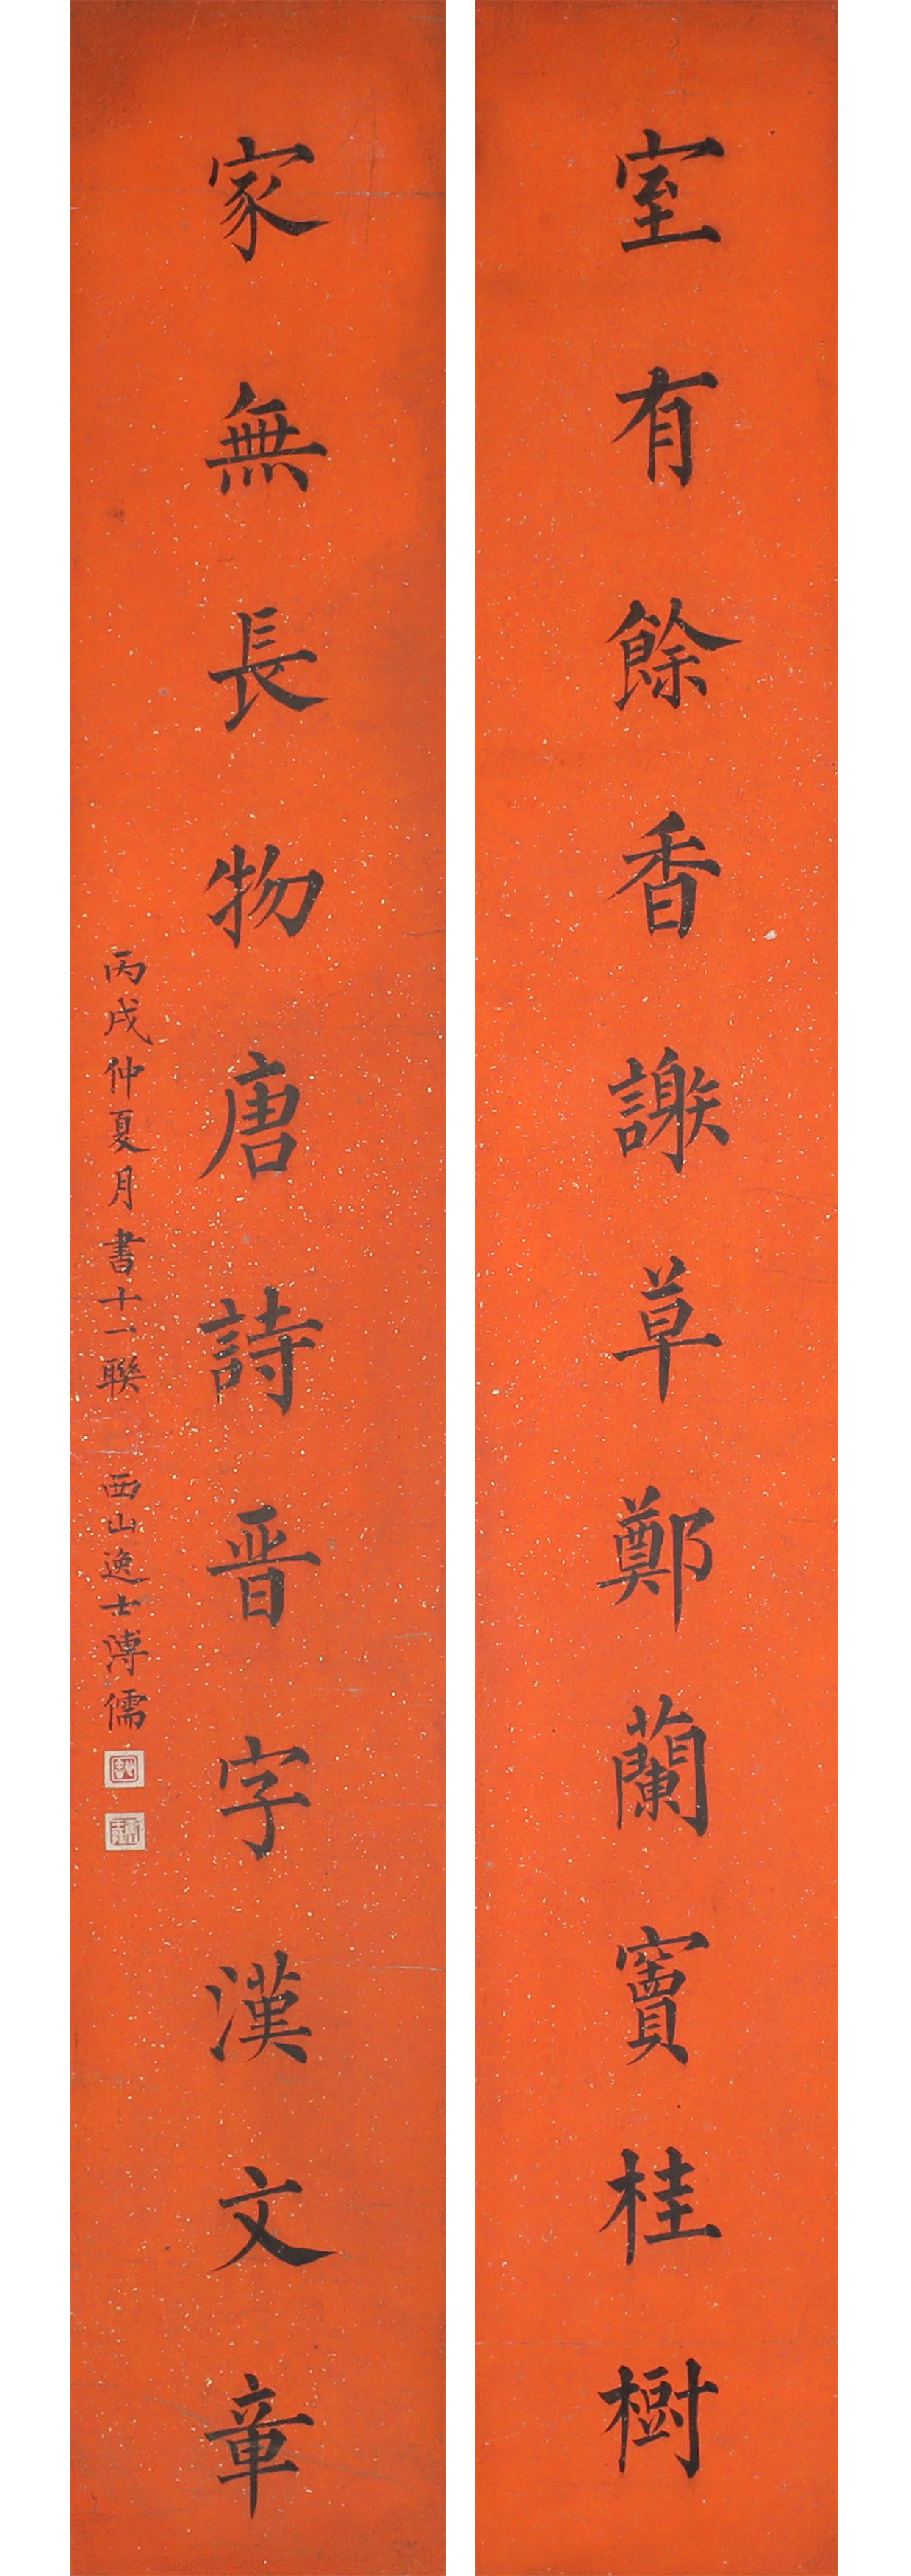 室有餘香謝草鄭蘭竇桂樹
家無長物唐詩晋字漢文章
丙戌仲夏月書十一聯 西山逸士溥儒